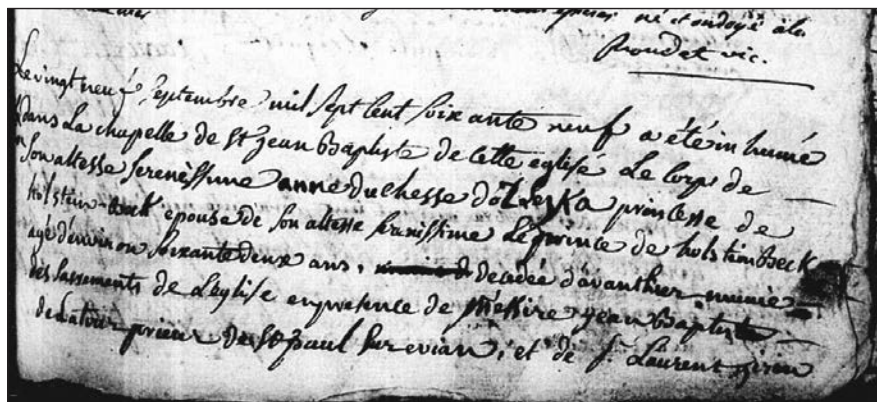 né et ondoyé à la
proudet vic.
Le vingt neuf septembre mil sept cent soixante neuf a été inhumé
dans la chapelle de st jean Baptiste de cette eglise Le corps de
son altesse serenissime anne duchesse d'olzeska princesse de
holstein-beck epouse de son altesse serenissime Le prince de holstein Beck
agé d'environ soixante deux ans, decedée d'avanthier munie
des sacrements de L'eglise en presence de Messire jean Baptiste
prieur de st paul sur evian, et de sr Laurent